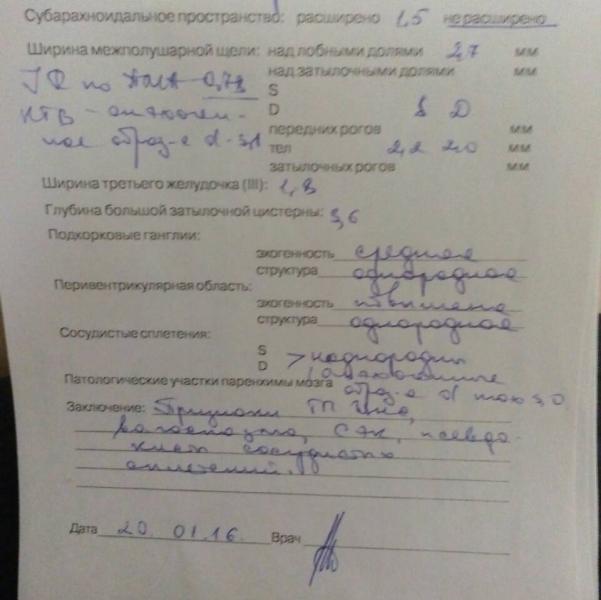 Субарахноидальное пространство: расширено 1,5 не расширено
Ширина межполушарной щели: над лобными долями 2,7 мм
над затылочными долями мм
JR по ПМА - 0,73 S
D S D
передних рогов мм
тел 2,2 2,0 мм
затылочных рогов мм
Ширина третьего желудочка (III): 1,8
Глубина большой затылочной цистерны: 3,6
Подкорковые ганглии:
эхогенность средняя
структура однородная
Перивентрикулярная область:
эхогенность повышена
структура однородная
Сосудистые сплетения:
S
D > неоднородны
Патологические участки паренхимы мозга
образ-е d
Заключение: Признаки
САК, псевдо-
кисты сосудистых
сплетений.
Дата 20.01.16. Врач